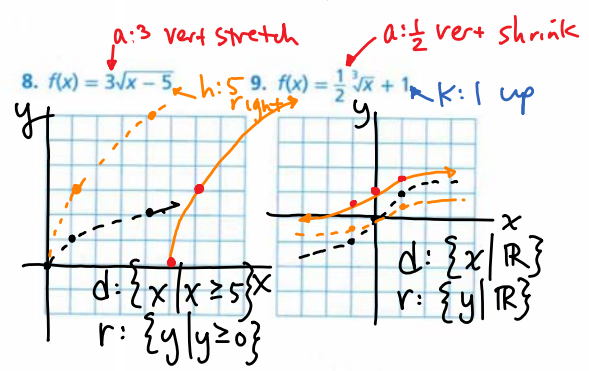 a:3 vert stretch
a:½ vert shrink
8. f(x) = 3√x − 5
h:5
right
9. f(x) = ½ ∛x + 1
K:1 up
y
y
x
x
d:{x|x≥5}
r:{y|y≥0}
d:{x|ℝ}
r:{y|ℝ}